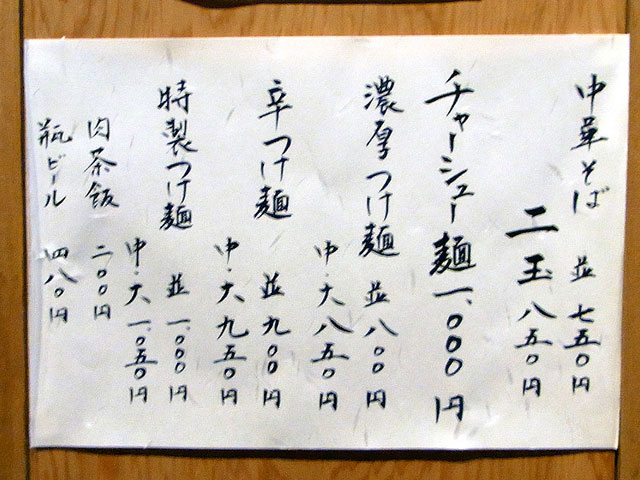 中華そば 並 七五〇円
二玉 八五〇円
チャーシュー麺 一、〇〇〇円
濃厚つけ麺 並 八〇〇円
中・大 八五〇円
辛つけ麺 並 九〇〇円
中・大 九五〇円
時製つけ麺 並 一、〇〇〇円
中・大 一、〇五〇円
肉茶飯 二〇〇円
瓶ビール 四八〇円